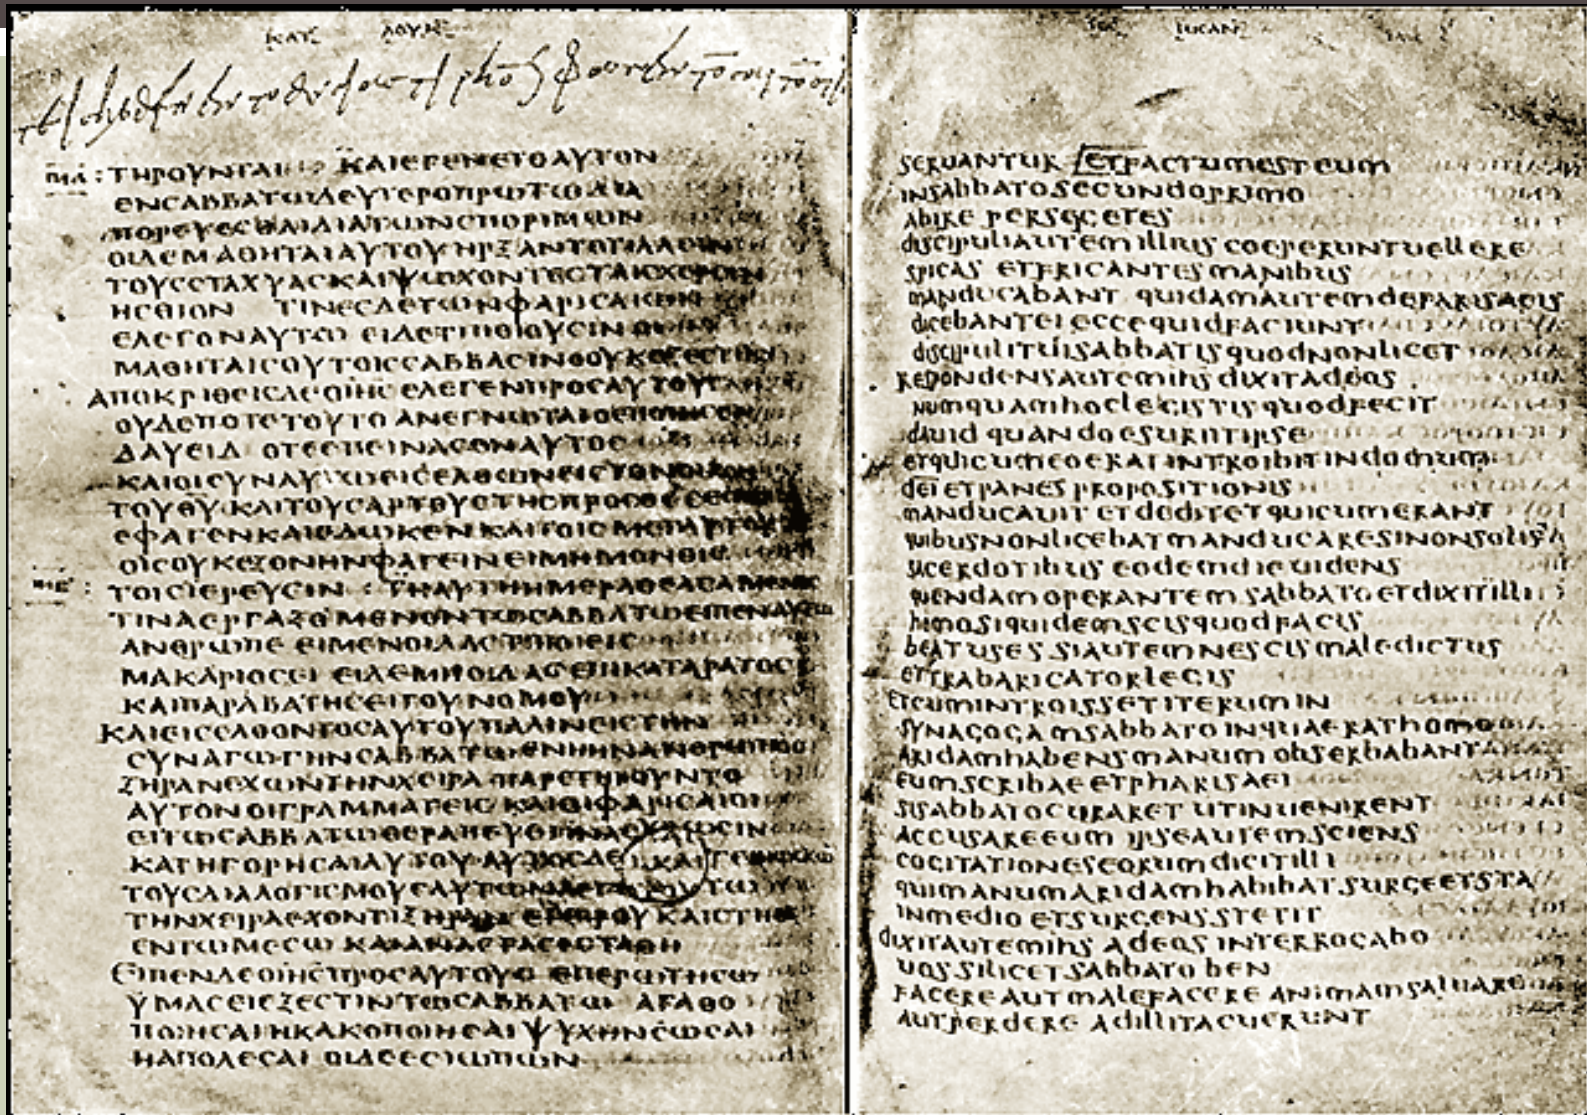 ΚΑΤ ΛΟΥΚ
ΜΑ ΤΗΡΟΥΝΤΑΙ ΚΑΙΕΓΕΝΕΤΟΑΥΤΟΝ
ΕΝCΑΒΒΑΤΩΔΕΥΤΕΡΟΠΡΩΤΩΔΙΑ
ΠΟΡΕΥΕCΘΑΙΔΙΑΤΩΝCΠΟΡΙΜΩΝ
ΟΙΔΕΜΑΘΗΤΑΙΑΥΤΟΥΗΡΞΑΝΤΟΤΙΛΛΕΙΝ
ΤΟΥCCΤΑΧΥΑCΚΑΙΨΩΧΟΝΤΕCΤΑΙCΧΕΡCΙΝ
ΗCΘΙΟΝ ΤΙΝΕCΔΕΤΩΝΦΑΡΙCΑΙΩΝ
ΕΛΕΓΟΝΑΥΤΩ ΕΙΔΕΤΙΠΟΙΟΥCΙΝΟΙ
ΜΑΘΗΤΑΙCΟΥΤΟΙCCΑΒΒΑCΙΝΟΟΥΚΕΞΕCΤΙΝ
ΑΠΟΚΡΙΘΕΙCΔΕΟΙΗC ΕΛΕΓΕΝΠΡΟCΑΥΤΟΥC
ΟΥΔΕΠΟΤΕΤΟΥΤΟ ΑΝΕΓΝΩΤΑΙΟΕΠΟΙΗCΕΝ
ΔΑΥΕΙΔ ΟΤΕΕΠΕΙΝΑCΕΝΑΥΤΟC
ΚΑΙΟΙCΥΝΑΥΤΩΕΙCΕΛΘΩΝΕΙCΤΟΝΟΙΚΟΝ
ΤΟΥΘΥ ΚΑΙΤΟΥCΑΡΤΟΥCΤΗCΠΡΟCΘΕCΕΩC
ΕΦΑΓΕΝΚΑΙΕΔΩΚΕΝΚΑΙΤΟΙCΜΕΤΑΥΤΟΥ
ΟΙCΟΥΚΕΞΟΝΗΝΦΑΓΕΙΝΕΙΜΗΜΟΝΟΙC
ΤΟΙCΙΕΡΕΥCΙΝ ΤΗΑΥΤΗΗΜΕΡΑΘΕΑCΑΜΕΝΟC
ΤΙΝΑΕΡΓΑΖΟΜΕΝΟΝΤΩCΑΒΒΑΤΩΕΙΠΕΝΑΥΤΩ
ΑΝΘΡΩΠΕ ΕΙΜΕΝΟΙΔΑCΤΙΠΟΙΕΙC
ΜΑΚΑΡΙΟCΕΙ ΕΙΔΕΜΗΟΙΔΑCΕΠΙΚΑΤΑΡΑΤΟC
ΚΑΙΠΑΡΑΒΑΤΗCΕΙΤΟΥΝΟΜΟΥ
ΚΑΙΕΙCΕΛΘΟΝΤΟCΑΥΤΟΥΠΑΛΙΝΕΙCΤΗΝ
CΥΝΑΓΩΓΗΝCΑΒΒΑΤΩΕΝΗΗΝΑΝΘΡΩΠΟC
ΞΗΡΑΝΕΧΩΝΤΗΝΧΕΙΡΑ ΠΑΡΕΤΗΡΟΥΝΤΟ
ΑΥΤΟΝΟΙΓΡΑΜΜΑΤΕΙC ΚΑΙΟΙΦΑΡΙCΑΙΟΙ
ΕΙΤΩCΑΒΒΑΤΩΘΕΡΑΠΕΥΕΙΙΝΑΕΥΡΩCΙΝ
ΚΑΤΗΓΟΡΗCΑΙΑΥΤΟΥ
ΤΟΥCΔΙΑΛΟΓΙCΜΟΥCΑΥΤΩΝΛΕΓΕΙ ΤΩ
ΤΗΝΧΕΙΡΑΕΧΟΝΤΙΞΗΡΑΝ ΕΓΕΙΡΟΥΚΑΙCΤΗΘΙ
ΕΝΤΩΜΕCΩ ΚΑΙΑΝΑCΤΑCΕCΤΑΘΗ
ΕΙΠΕΝΔΕΟΙΗCΠΡΟCΑΥΤΟΥC ΕΠΕΡΩΤΗCΩ
ΥΜΑCΕΙΕΞΕCΤΙΝΤΩCΑΒΒΑΤΩ ΑΓΑΘΟ
ΠΟΙΗCΑΙΗΚΑΚΟΠΟΙΗCΑΙ ΨΥΧΗΝCΩCΑΙ
ΗΑΠΟΛΕCΑΙ ΟΙΔΕΕCΙΩΠΩΝ
LUCAN
SERUANTUR ETFACTUMESTEUM
INSABBATOSECUNDOPRIMO
ABIRE PERSEGETES
DISCIPULIAUTEMILLIUS COEPERUNTUELLERE
SPICAS ETFRICANTESMANIBUS
MANDUCABANT QUIDAMAUTEMDEFARISAEIS
DICEBANTEI ECCEQUIDFACIUNT
DISCIPULITUISABBATISQUODNONLICET
RESPONDENSAUTEMIHS DIXITADEOS
NUMQUAMHOCLEGISTISQUODFECIT
DAUID QUANDOESURIITIPSE
ETQUICUMEOERAT INTROIBITINDOMUM
DEI ETPANES PROPOSITIONIS
MANDUCAUIT ETDEDITETQUICUMERANT
QUIBUSNONLICEBATMANDUCARESINONSOLIS
SACERDOTIBUS EODEMDIEUIDENS
QUENDAMOPERANTEM SABBATOETDIXITILLI
HOMOSIQUIDEMSCISQUODFACIS
BEATUSES SIAUTEMNESCISMALEDICTUS
ETTRABARICATORLEGIS
ETCUMINTROISSETITERUMIN
SYNAGOGAMSABBATO INQUAERATHOMO
ARIDAMHABENSMANUM OBSERBABANT
EUMSCRIBAEETPHARISAEI
SISABBATOCURARET UTINUENIRENT
ACCUSAREEUM IPSEAUTEMSCIENS
COGITATIONESEORUMDICITILLI
QUIMANUMARIDAMHABIBAT SURGEETSTA
INMEDIO ETSURGENSSTETIT
DIXITAUTEMIHS ADEOS INTERROGABO
UOSSILICETSABBATO BEN
FACEREAUTMALEFACERE ANIMAMSALUARE
AUTPERDERE ADILLITACUERUNT